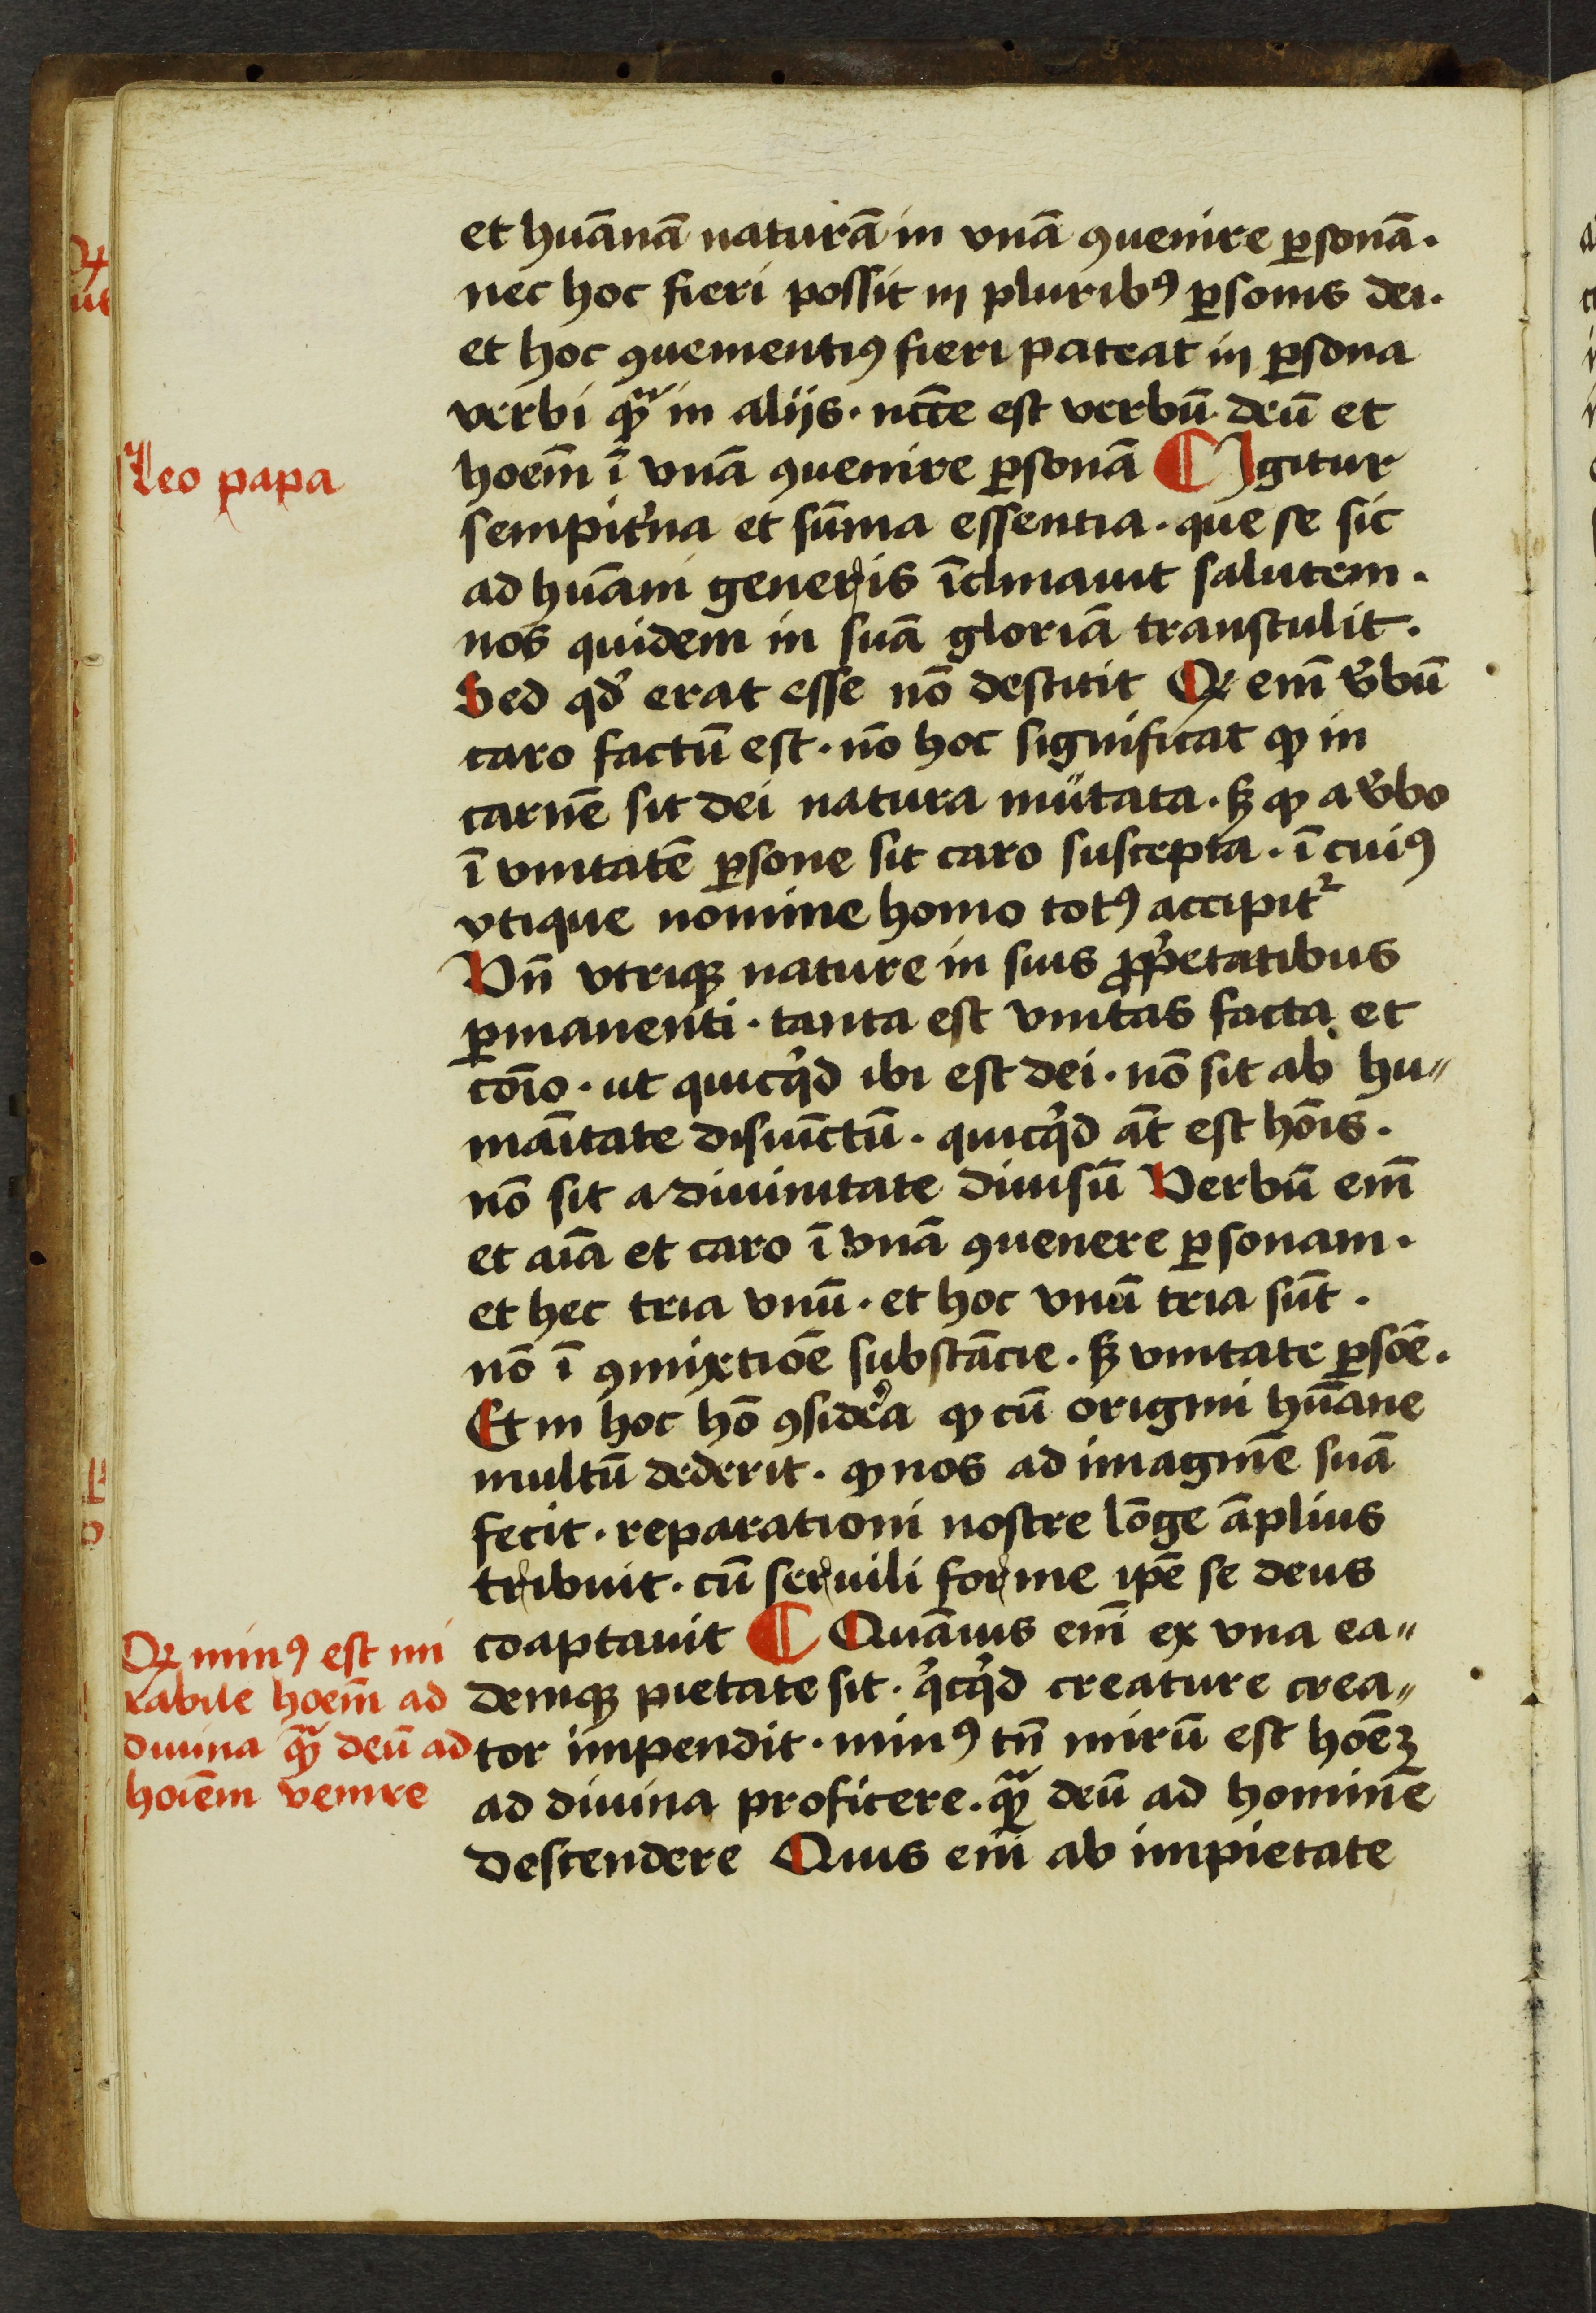 et huānā naturā in vnā ꝯuenire ꝑsonā.
nec hoc fieri possit in pluribꝰ ꝑsonis dei.
et hoc ꝯuenientiꝰ fieri pateat in ꝑsona
verbi qᷓꝫ in alijs. ncc̄e est verbū deū et
Leo papa
hoem̄ ī vnā ꝯuenire ꝑsonā ¶ Igitur
sempit̓na et sūma essentia. que se sic
ad huāni generis īclinauit salutem.
nos quidem in suā gloriā transtulit.
Sed qd̓ erat esse nō destitit Qꝛ em̄ v̓bū
caro factū est. nō hoc significat ꝙ in
carnē sit dei natura mutata. sꝫ ꝙ a v̓bo
ī vnitatē ꝑsone sit caro suscepta. ī cuiꝰ
vtique nomine homo totꝰ accipitᷣ
Vn̄ vtriqꝫ nature in suis ꝓp̓etatibus
ꝑmanenti. tanta est vnitas facta et
cōio. ut quicq̓d ibi est dei. nō sit ab hu⸗
māitate disiūctū. quicq̓d āt est hōis.
nō sit a diuinitate diuisū Verbū em̄
et aīa et caro ī vnā ꝯuenere ꝑsonam.
et hec tria vnū. et hoc vnū tria sūt.
nō ī ꝯmixtiōe substācie. sꝫ vnitate ꝑsōe.
Et in hoc hō ꝯsid̓era ꝙ cū origini hūane
multū dederit. ꝙ nos ad imaginē suā
fecit. reparationi nostre lōge āplius
tribuit. cū seruili forme ip̄e se deus
coaptauit ¶ Quāuis em̄ ex vna ea⸗
Qꝛ minꝰ est mi
rabile hoem̄ ad
diuina qᷓꝫ deū ad
hoiēm venire
demqꝫ pietate sit. q̓cq̓d creature crea⸗
tor impendit. minꝰ tn̄ mirū est hoēꝫ
ad diuina proficere. qᷓꝫ deū ad hominē
descendere Quis em̄ ab impietate